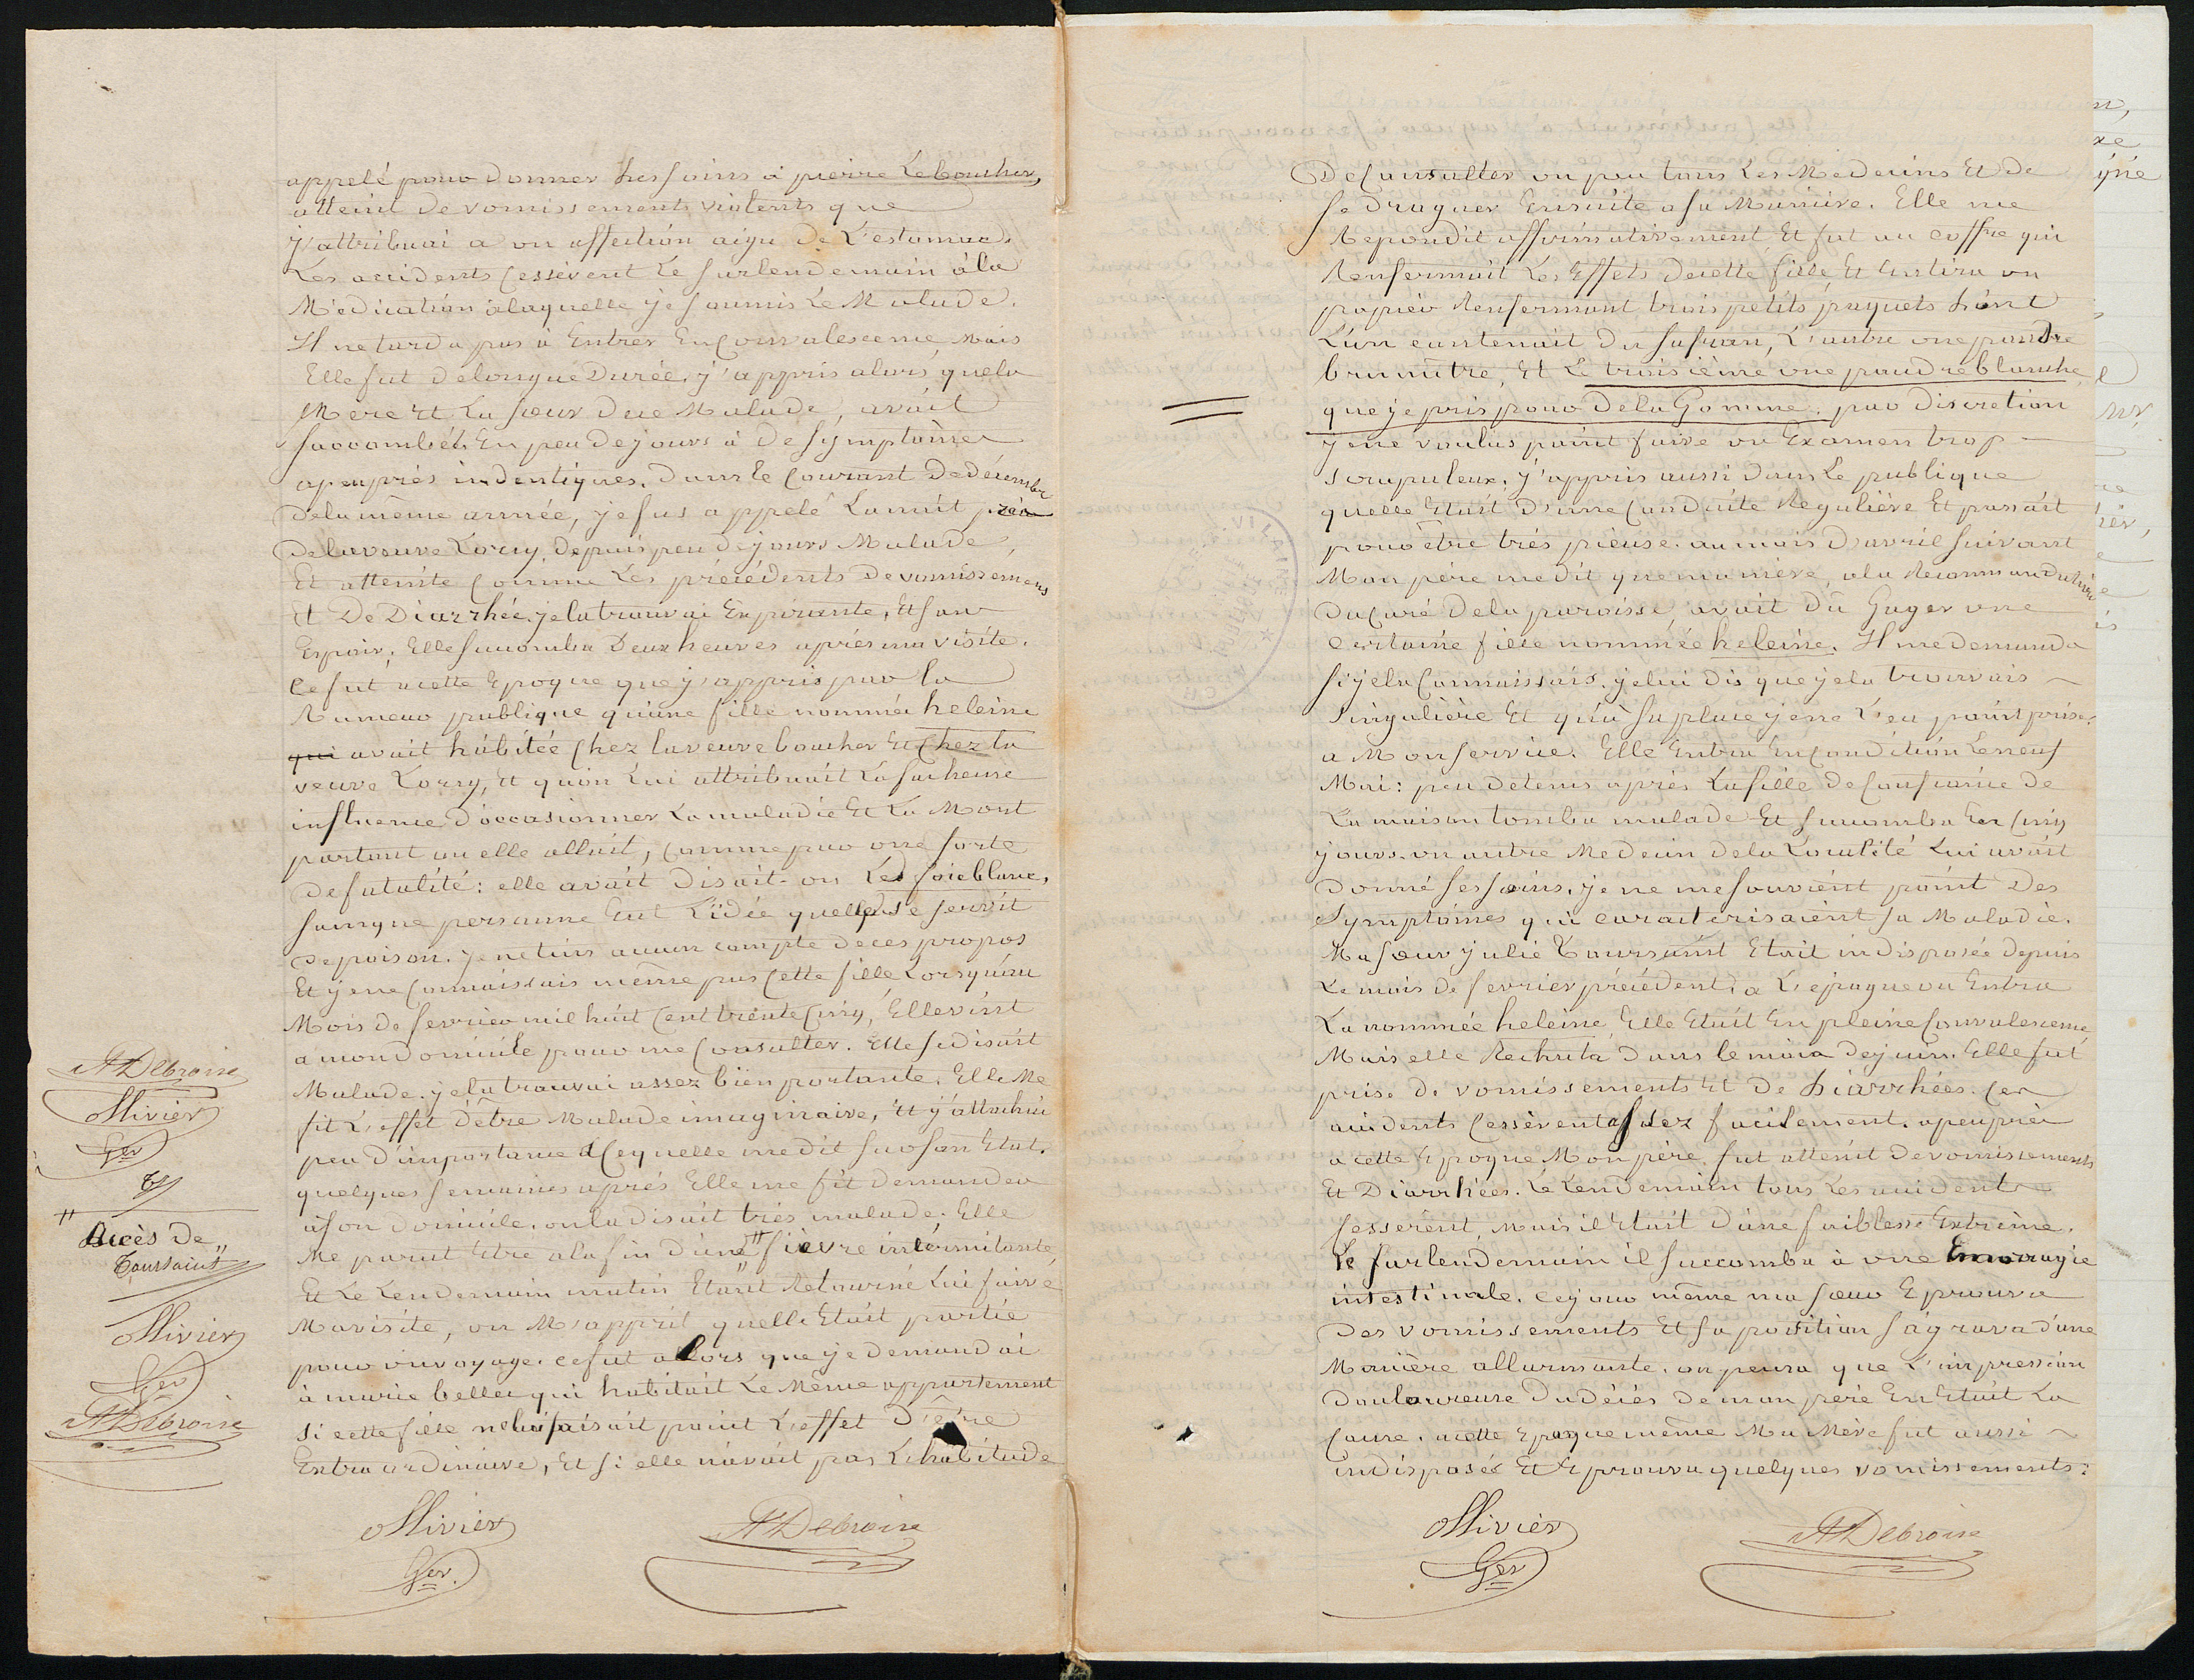 appelé pour donner des soins à pierre Leboucher,
atteint de vomissements violents que
j'attribuai a un affection aigu de L'estomac.
Les accidents Cessèrent Le surlendemain à la
Médication àlaquelle je soumis Le Malade.
Il ne tarda pas à Entrer En Convalescence, Mais
Elle fut de longue Durée. j'appris alors, quela
Mère Et La soeur due Malade, avait
succombées En peu dejours à de symptômes
apeuprés indentiques. Dans le Courant De décembre
dela même année, je fus appelé La nuit près
De la veuve Lorcy, depuis peu dejours Malade,
Et atteinte Comme Les précédents de vomissements
Et De Diarrhée. je la trouvai Expirante, Et sans
Espoir. Elle succomba Deux heures après ma visite.
Ce fut acette Epoque que j'appris par la
Rumeur publique qu'une fille nommée heleine
qui avait habitée Chez la veuve boucher Et Chez la
veuve Lorcy, Et qu'on Lui attribuait La facheuse
influence d'occasionner La maladie Et La Mort
partout ou elle allait, comme par une sorte
de fatalité: elle avait disait-on Le foie blanc,
sans que personne Eut L'idée quelle se servit
De poison. je ne tins aucun compte de ces propos
Et je ne Connaissais même pas Cette fille Lorsqu'au
Mois de fevrier mil huit Cent trente Cinq, Elle vint
a mon domicile pour me Consulter. Elle se disait
Malade. je la trouvai assez bien portante. Elle Me
fit L'effet d'être Malade imaginaire, Et j'attachai
peu d'importance a Ce quelle me dit sur son Etat.
quelques semaines après Elle me fit demander
à son domicile. on la disait très malade. Elle
Me parut Etre a la fin d'une " fievre intermitante,
Et Le Lendemain matin Etant Retourné Lui faire
Ma visite, on M'apprit quelle Etait partie
pour un voyage. ce fut alors que je demandai
à marie bellec qui habitait Le Même appartement
si cette fille ne lui faisait point L'effet d'être
Extraordinaire, Et si elle n'avait pas L'habitude
ADebroise
Ollivier
Ger
" Accès de
Toussaint "
Ollivier
Ger
ADebroise
Ollivier
Ger
ADebroise
De Consulter un peu tous Les Medecins Et de
se droguer Ensuite a sa Manière. Elle me
Repondit affirmativement, Et fut au coffre qui
Renfermait Les Effets de cette fille Et En tira un
papier Renfermant trois petits paquets dont
L'un contenait du safran, L'autre une poudre
brunâtre, Et Le troisième une poudre blanche
que je pris pour De la Gomme. par discretion
je ne voulus point faire un Examen trop
scrupuleux. j'appris aussi dans Le publique
quelle Etait d'une Conduite Regulière Et passait
pour être très pieuse. au mois d'avril suivant
Mon père me dit que ma mere, a la Recommandation
Du Curé dela paroisse, avait dû Gager une
certaine fille nommée heleine. Il me demanda
si je la Connaissais. je lui dis que je la trouvais
singulière Et qu'à sa place je ne L'eu point prise
a Mon service. Elle Entra En Condition Le neuf
Mai: peu de tems après La fille de Confiance de
La maison tomba malade Et succomba En Cinq
jours. un autre Medecin de la Localité Lui avait
donné ses soins. je ne me souvient point des
symptômes qui caracterisaient sa Maladie.
Ma soeur julie Toursaint Etait indisposée depuis
Le mois de fevrier précédent. a L'epoque ou Entra
La nommée heleine, Elle Etait En pleine Convalescence
Mais elle Rechuta dans le mois de juin. Elle fut
prise de vomissements Et de diarrhées. Ces
accidents Cessèrent assez facilement. apeuprès
a cette Epoque Mon père fut atteint de vomissements
Et Diarrhées. Le Lendemain tous Les accidents
Cesserent, Mais il Etait d'une faiblesse Extrême.
Le surlendemain il succomba à une Emorragie
intestinale. ce jour même ma soeur Eprouva
des vomissements Et sa position s'agrava d'une
Manière allarmante. on pensa que L'impression
douloureuse du décès de mon père En Etait La
Cause. acette Epoque même Ma Mère fut aussi
indisposée Et Eprouva quelques vomissements:
Ollivier
Ger
ADebroise